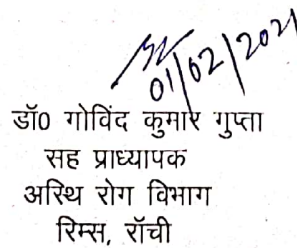 01/02/2021
डॉ0 गोविंद कुमार गुप्ता
सह प्राध्यापक
अस्थि रोग विभाग
रिम्स, राँची